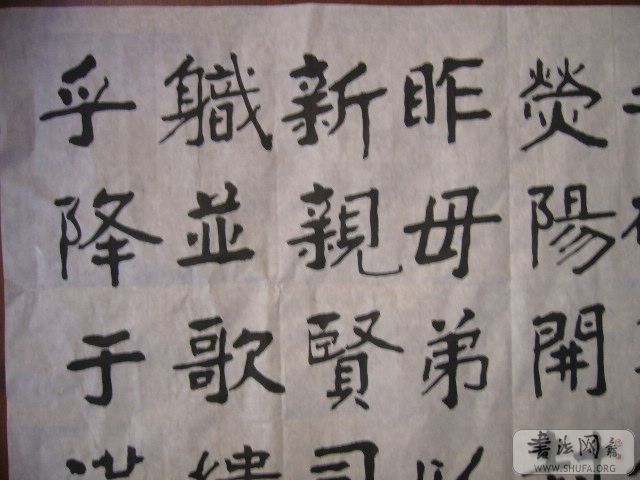 熒陽開
昨毋弟以
新親賢司
軄並歌
乎降于
書法网
WWW.SHUFA.ORG